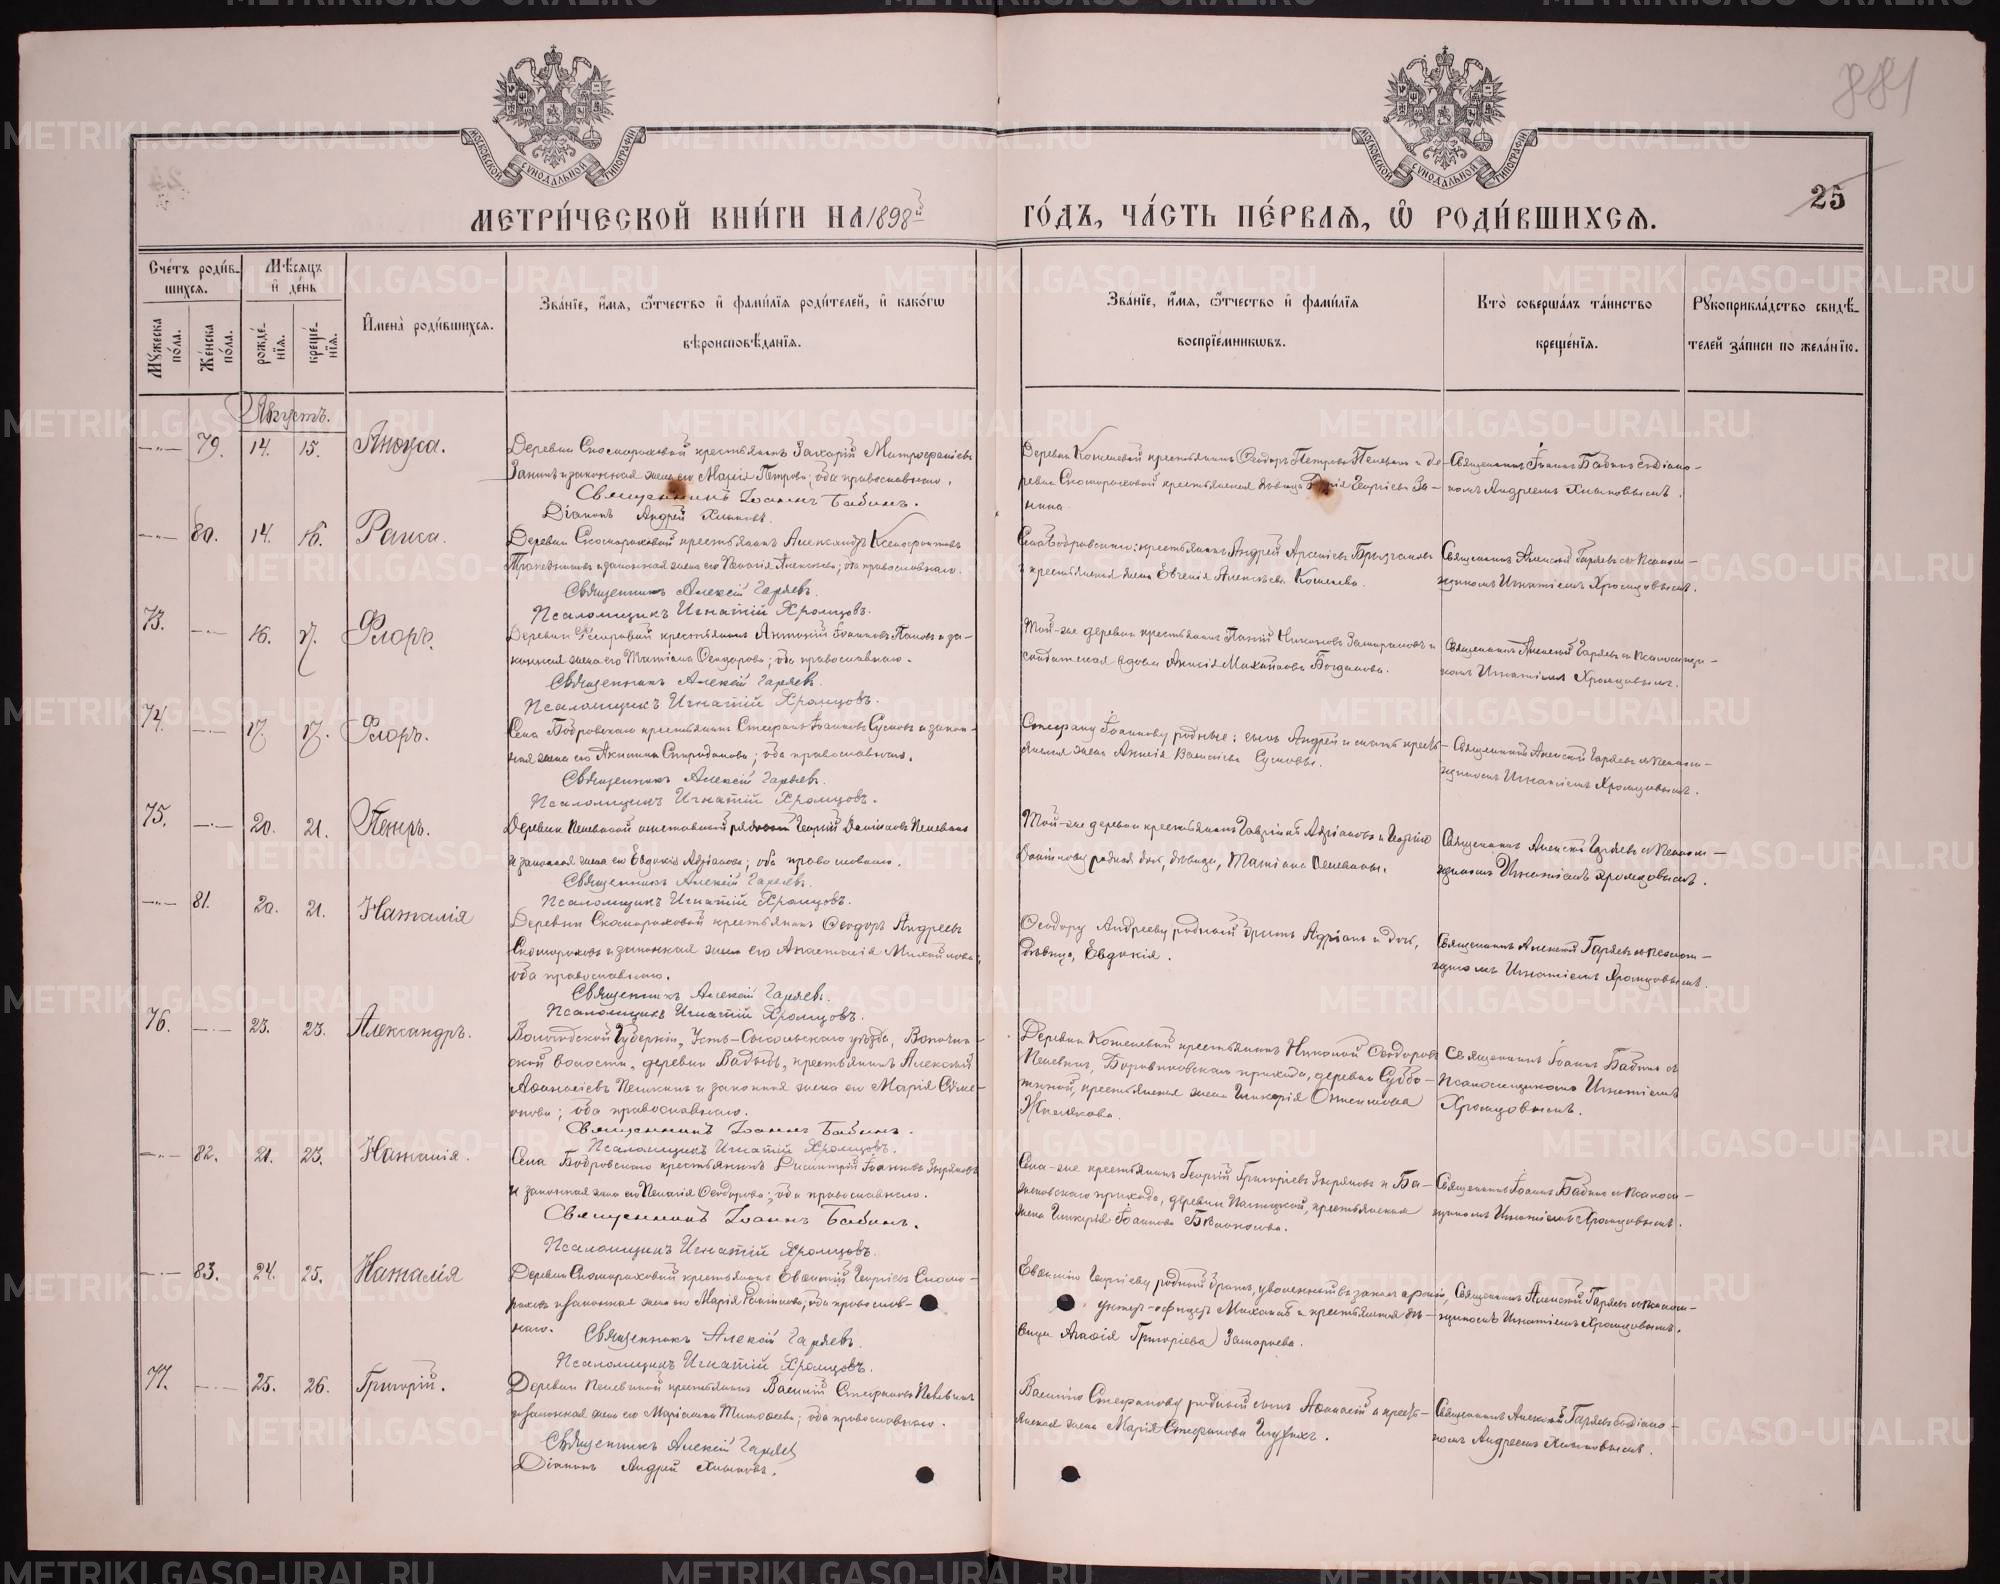 881
25
МОСКОВСКОЙ СУНОДАЛЬНОЙ ТИПОГРАФІИ
МОСКОВСКОЙ СУНОДАЛЬНОЙ ТИПОГРАФІИ
МЕТРИ́ЧЕСКОЙ КНИ́ГИ НА 1898й ГО́ДЪ, ЧА́СТЬ ПЕ́РВАЯ, Ѽ РОДИ́ВШИХСЯ.
Сче́тъ роди́в-
шихся.
Мѣ́сяцъ
и҆ де́нь
Мꙋжеска по́ла.
Же́нска по́ла.
рожде́-
нїя.
креще́-
нїя.
И҆мена̀ роди́вшихся.
Зва́нїе, и҆́мя, ѻ҆́тчество и҆ фами́лїя роди́телей, и҆ како́гѡ
вѣроисповѣ́данїя.
Зва́нїе, и҆́мя, ѻ҆́тчество и҆ фами́лїя
воспрїе́мникѡвъ.
Кто̀ соверша́лъ та́инство
креще́нїя.
Рꙋкоприкла́дство свидѣ́-
телей за́писи по жела́нїю.
Августъ.
79. 14. 15. Анѳуса.
Деревни Скомороховой крестьянинъ Захарій Митрофаніевъ
Занинъ и законная жена его Марія Петрова; оба православнаго.
Священникъ Іоаннъ Бабинъ.
Діаконъ Андрей Хлыновъ.
Деревни Кошелевой крестьянинъ Ѳеодоръ Петровъ Пелевинъ и де-
ревни Скомороховой крестьянская дѣвица Георгіева За-
нина.
Священникъ Іоаннъ Бабинъ съ діако-
номъ Андреемъ Хлыновымъ.
80. 14. 16. Раиса.
Деревни Скомороховой крестьянинъ Александръ Ксенофонтовъ
Трапезниковъ и законная жена его Пелагія Алексіева; оба православнаго.
Священникъ Алексій Гаряевъ.
Псаломщикъ Игнатій Хромцовъ.
Села Бобровскаго: крестьянинъ Андрей Арсеніевъ
и крестьянская жена Евгенія Алексѣева Кошелева.
Священникъ Алексій Гаряевъ съ псалом-
щикомъ Игнатіемъ Хромцовымъ.
73. 16. 17. Флоръ.
Деревни крестьянинъ Антоній Іоанновъ Пановъ и за-
конная жена его Татіана Ѳеодорова; оба православнаго.
Священникъ Алексій Гаряевъ.
Псаломщикъ Игнатій Хромцовъ.
Той-же деревни крестьянинъ Никоновъ и
солдатская вдова Анисія Михайлова Богданова.
Священникъ Алексій Гаряевъ съ псаломщи-
комъ Игнатіемъ Хромцовымъ.
74. 17. 17. Флоръ.
Села Бобровскаго крестьянинъ Стефанъ Іоанновъ Сусловъ и закон-
ная жена его Акилина Спиридонова; оба православнаго.
Священникъ Алексій Гаряевъ.
Псаломщикъ Игнатій Хромцовъ.
Стефану Іоаннову родные: сынъ Андрей и сноха крестъ-
янская жена Анисія Васильева Сусловы.
Священникъ Алексій Гаряевъ съ псалом-
щикомъ Игнатіемъ Хромцовымъ.
75. 20. 21. Петръ.
Деревни Пелевиной отставной рядовой Георгій Даниловъ Пелевинъ
и законная жена его Евдокія Адріанова; оба православнаго.
Священникъ Алексій Гаряевъ.
Псаломщикъ Игнатій Хромцовъ.
Той-же деревни крестьянинъ Гавріилъ Адріановъ и Георгію
Данилову родная дочь, дѣвица, Татіана Пелевины.
Священникъ Алексій Гаряевъ съ псалом-
щикомъ Игнатіемъ Хромцовымъ.
81. 20. 21. Наталія
Деревни Скомороховой крестьянинъ Ѳеодоръ Андреевъ
Скомороховъ и законная жена его Анастасія Михайлова;
оба православнаго.
Священникъ Алексій Гаряевъ.
Псаломщикъ Игнатій Хромцовъ.
Ѳеодору Андрееву родной братъ Адріанъ и дочь,
дѣвица, Евдокія.
Священникъ Алексій Гаряевъ съ псалом-
щикомъ Игнатіемъ Хромцовымъ.
76. 23. 23. Александръ.
Вологодской Губерніи, Усть-Сысольскаго уѣзда,
ской волости, деревни крестьянинъ Алексій
Аѳанасіевъ и законная жена его Марія Симе-
онова; оба православнаго.
Священникъ Іоаннъ Бабинъ.
Псаломщикъ Игнатій Хромцовъ.
Деревни Кошелевой крестьянинъ Николай Ѳеодоровъ
Пелевинъ, прихода, деревни Суббо-
тиной, крестьянская жена Гликерія Онисимова
Священникъ Іоаннъ Бабинъ съ
псаломщикомъ Игнатіемъ
Хромцовымъ.
82. 21. 23. Наталія.
Села Бобровскаго крестьянинъ Димитрій Іоанновъ Зыряновъ
и законная жена его Пелагія Ѳеодорова; оба православнаго.
Священникъ Іоаннъ Бабинъ.
Псаломщикъ Игнатій Хромцовъ.
Села-же крестьянинъ Георгій Григоріевъ Зыряновъ и Ба-
женовскаго прихода, деревни крестьянская
жена Гликерія Іоаннова
Священникъ Іоаннъ Бабинъ съ псалом-
щикомъ Игнатіемъ Хромцовымъ.
83. 24. 25. Наталія
Деревни Скомороховой крестьянинъ Евѳимій Георгіевъ Скомо-
роховъ и законная жена его Марія оба православ-
наго.
Священникъ Алексій Гаряевъ.
Псаломщикъ Игнатій Хромцовъ.
Евѳимію Георгіеву родной братъ, уволенный въ запасъ арміи,
унтеръ-офицеръ Михаилъ и крестьянская дѣ-
вица Агаѳія Григоріева
Священникъ Алексій Гаряевъ съ псалом-
щикомъ Игнатіемъ Хромцовымъ.
77. 25. 26. Григорій.
Деревни Пелевиной крестьянинъ Василій Стефановъ Пелевинъ
и законная жена его Маріамна Тимоѳеева; оба православнаго.
Священникъ Алексій Гаряевъ
Діаконъ Андрей Хлыновъ.
Василію Стефанову родной сынъ Аѳанасій и кресть-
янская жена Марія Стефанова Глухихъ.
Священникъ Алексій Гаряевъ съ діако-
номъ Андреемъ Хлыновымъ.
METRIKI.GASO-URAL.RU